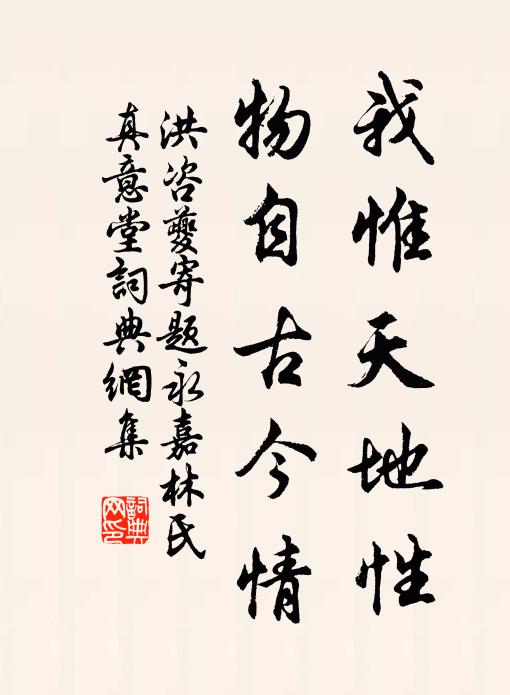 我惟天地性
物自古今情
洪咨夔寄題永嘉林氏
真意堂詞典網集
詞典網印